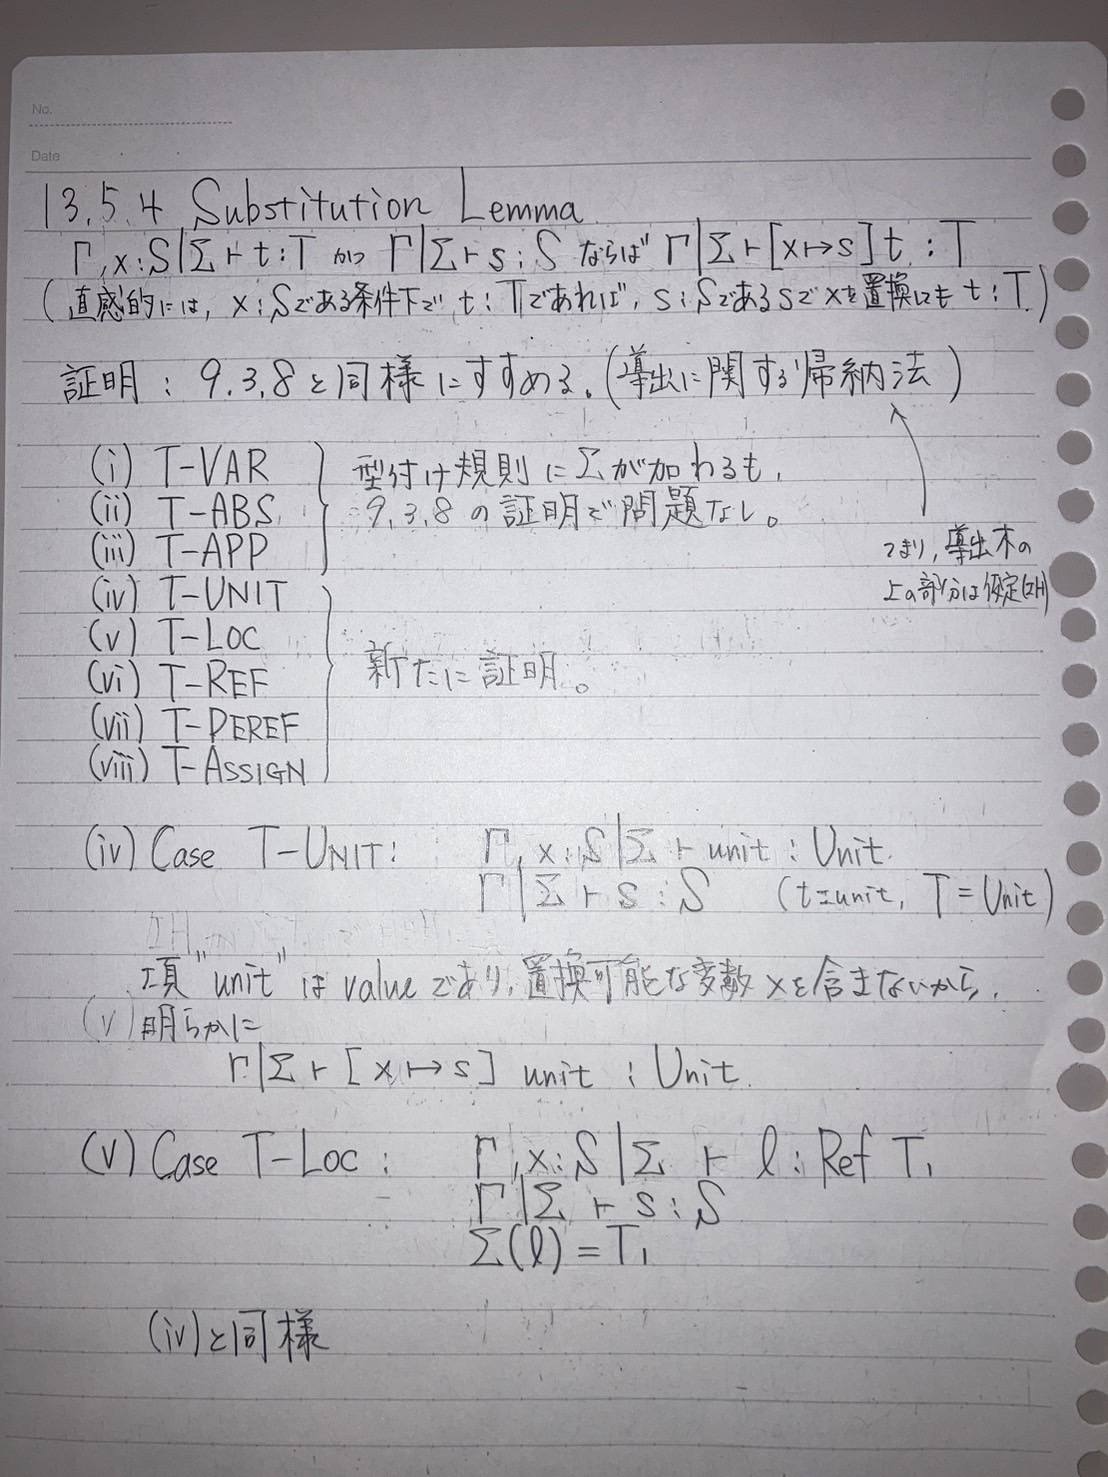 No.
Date
13.5.4 Substitution Lemma
Γ, x:S|Σ ⊢ t:T かつ Γ|Σ ⊢ s:S ならば Γ|Σ ⊢ [x↦s]t : T
(直感的には, x:Sである条件下で t:Tであれば, s:Sであるsでxを置換しても t:T.)
証明 : 9.3.8と同様にすすめる。(導出に関する帰納法)
つまり, 導出木の
上の部分は仮定(IH)
(i) T-VAR
(ii) T-ABS
(iii) T-APP
型付け規則にΣが加わるも,
9.3.8の証明で問題なし。
(iv) T-UNIT
(v) T-LOC
(vi) T-REF
(vii) T-DEREF
(viii) T-ASSIGN
新たに証明。
(iv) Case T-UNIT: Γ, x:S|Σ ⊢ unit : Unit.
Γ|Σ ⊢ s : S (t=unit, T = Unit)
項"unit"はvalueであり, 置換可能な変数xを含まないから,
(v) 明らかに
Γ|Σ ⊢ [x↦s] unit : Unit.
(v) Case T-LOC : Γ, x:S|Σ ⊢ l : Ref T₁
Γ|Σ ⊢ s:S
Σ(l) = T₁
(iv)と同様